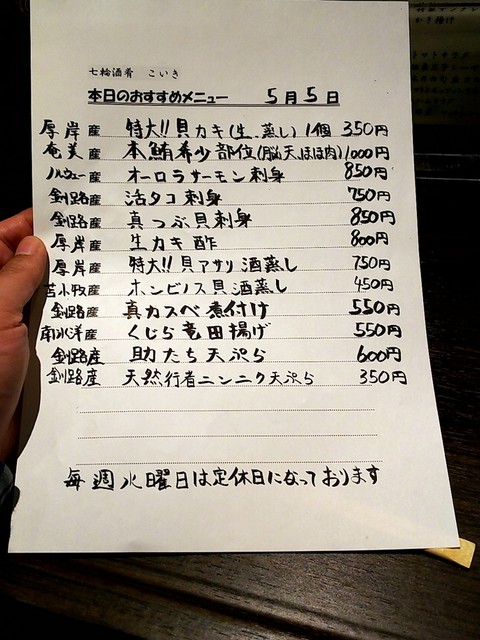 七輪酒肴 こいき
本日のおすすめメニュー 5月5日
厚岸産 特大!!貝カキ(生、蒸し)1個 350円
奄美産 本鮪希少部位(脳天、ほほ肉)1000円
ノルウェー産 オーロラサーモン刺身 850円
釧路産 活タコ刺身 750円
釧路産 真つぶ貝刺身 850円
厚岸産 生カキ酢 800円
厚岸産 特大!!貝アサリ酒蒸し 750円
苫小牧産 ホンビノス貝酒蒸し 450円
釧路産 真カスベ煮付け 550円
南氷洋産 くじら竜田揚げ 550円
釧路産 助たち天ぷら 600円
釧路産 天然行者ニンニク天ぷら 350円
毎週火曜日は定休日になっております
トマトサラダ